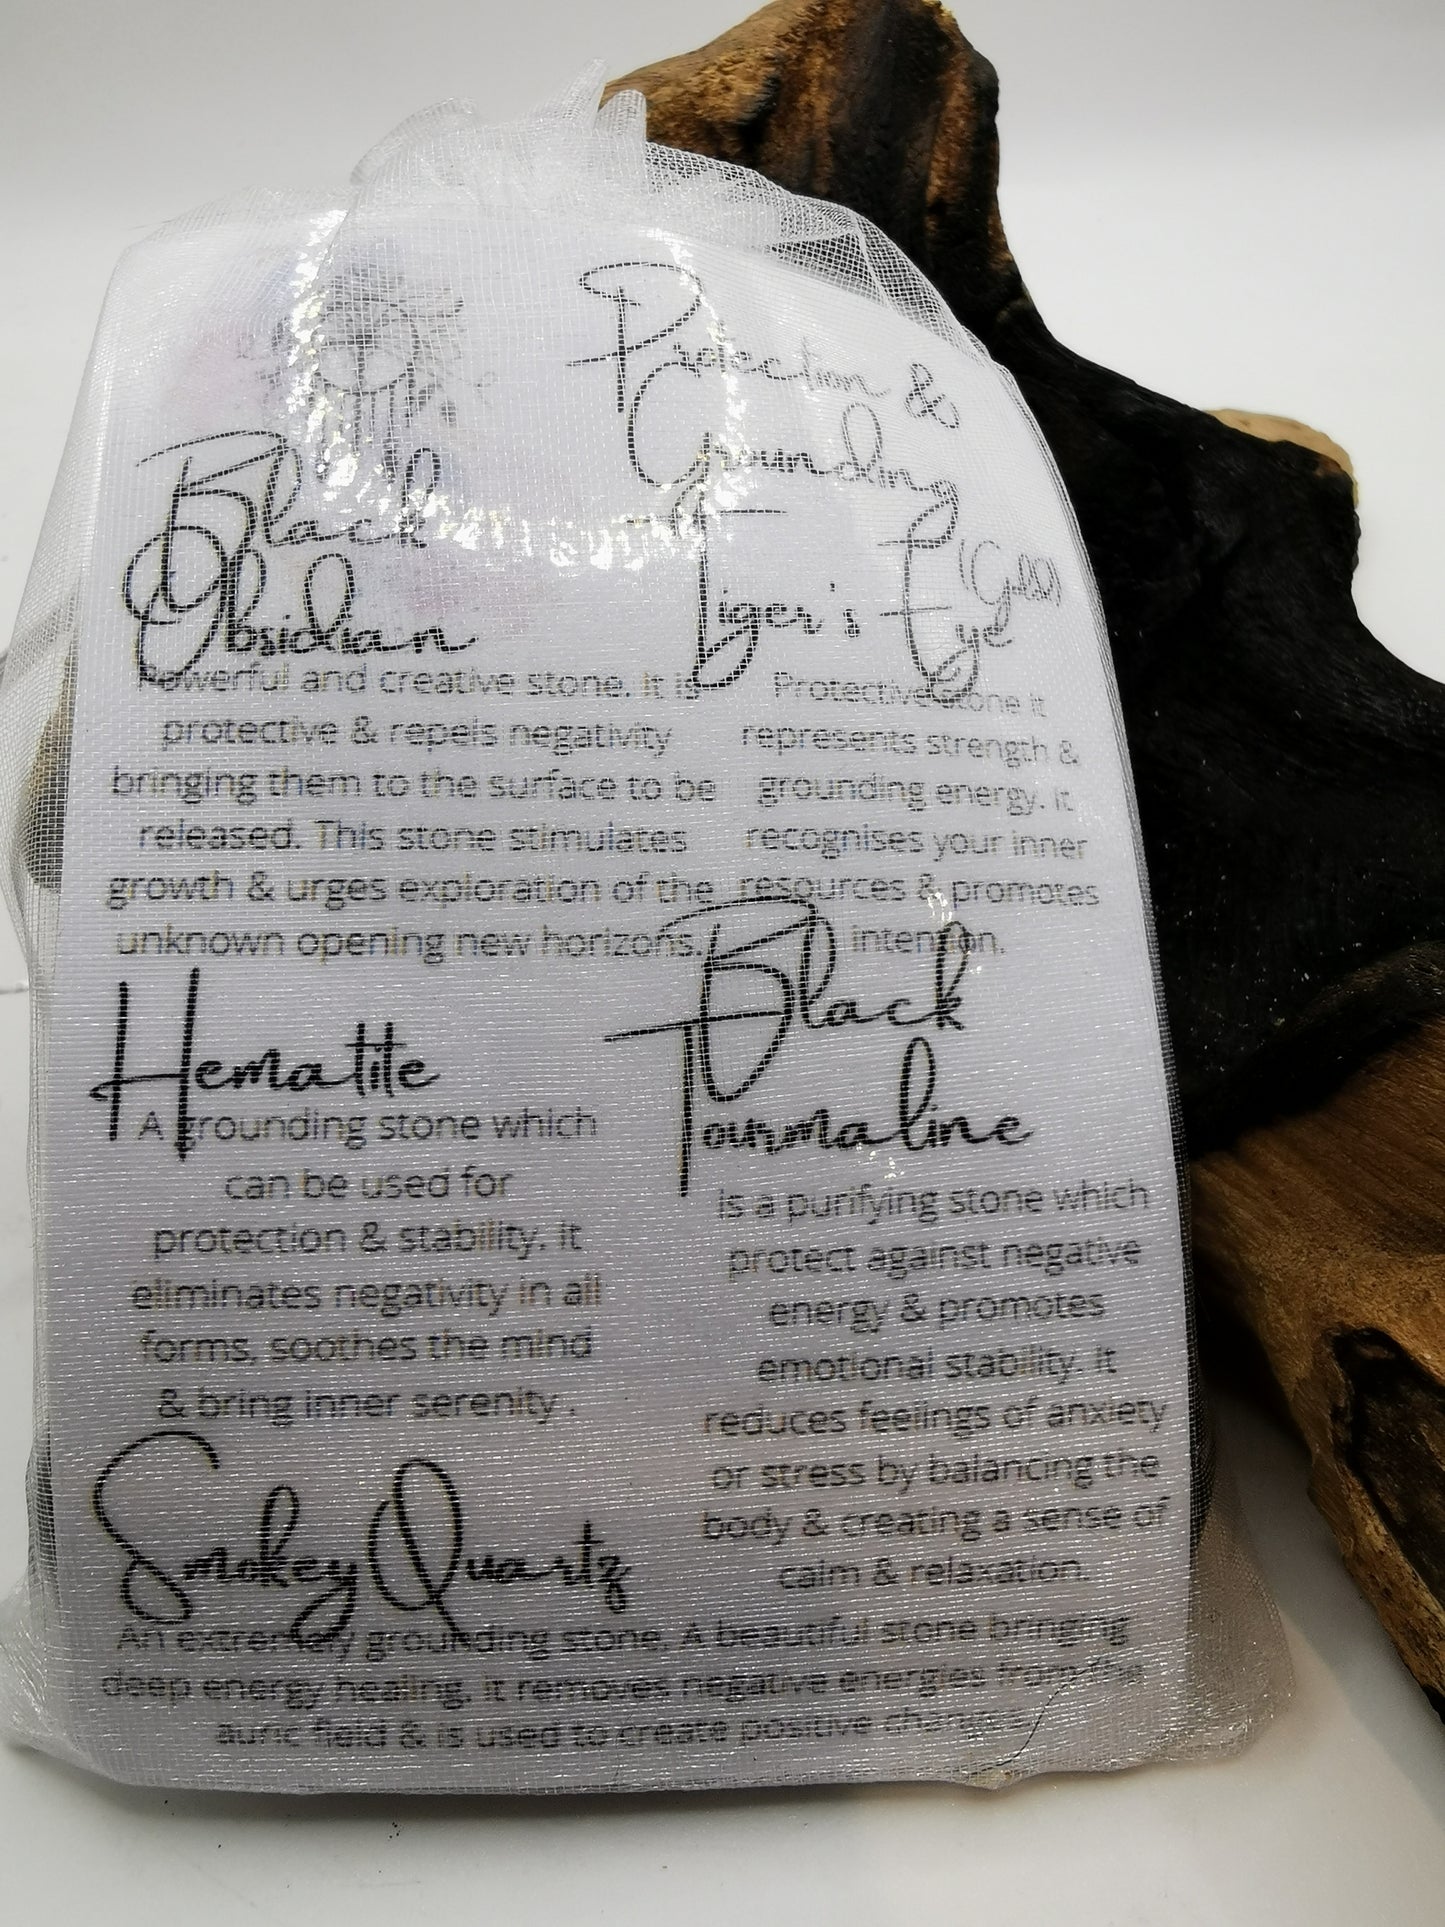 Protection &
Grounding
Black
Obsidian
Powerful and creative stone. It is
protective & repels negativity
bringing them to the surface to be
released. This stone stimulates
growth & urges exploration of the
unknown opening new horizons.
Tiger's Eye (Gold)
Protective stone it
represents strength &
grounding energy. it
recognises your inner
resources & promotes
intention.
Hematite
A grounding stone which
can be used for
protection & stability. It
eliminates negativity in all
forms, soothes the mind
& bring inner serenity .
Black
Tourmaline
is a purifying stone which
protect against negative
energy & promotes
emotional stability. It
reduces feelings of anxiety
or stress by balancing the
body & creating a sense of
calm & relaxation.
Smokey Quartz
An extremely grounding stone. A beautiful stone bringing
deep energy healing, it removes negative energies from the
auric field & is used to create positive changes.